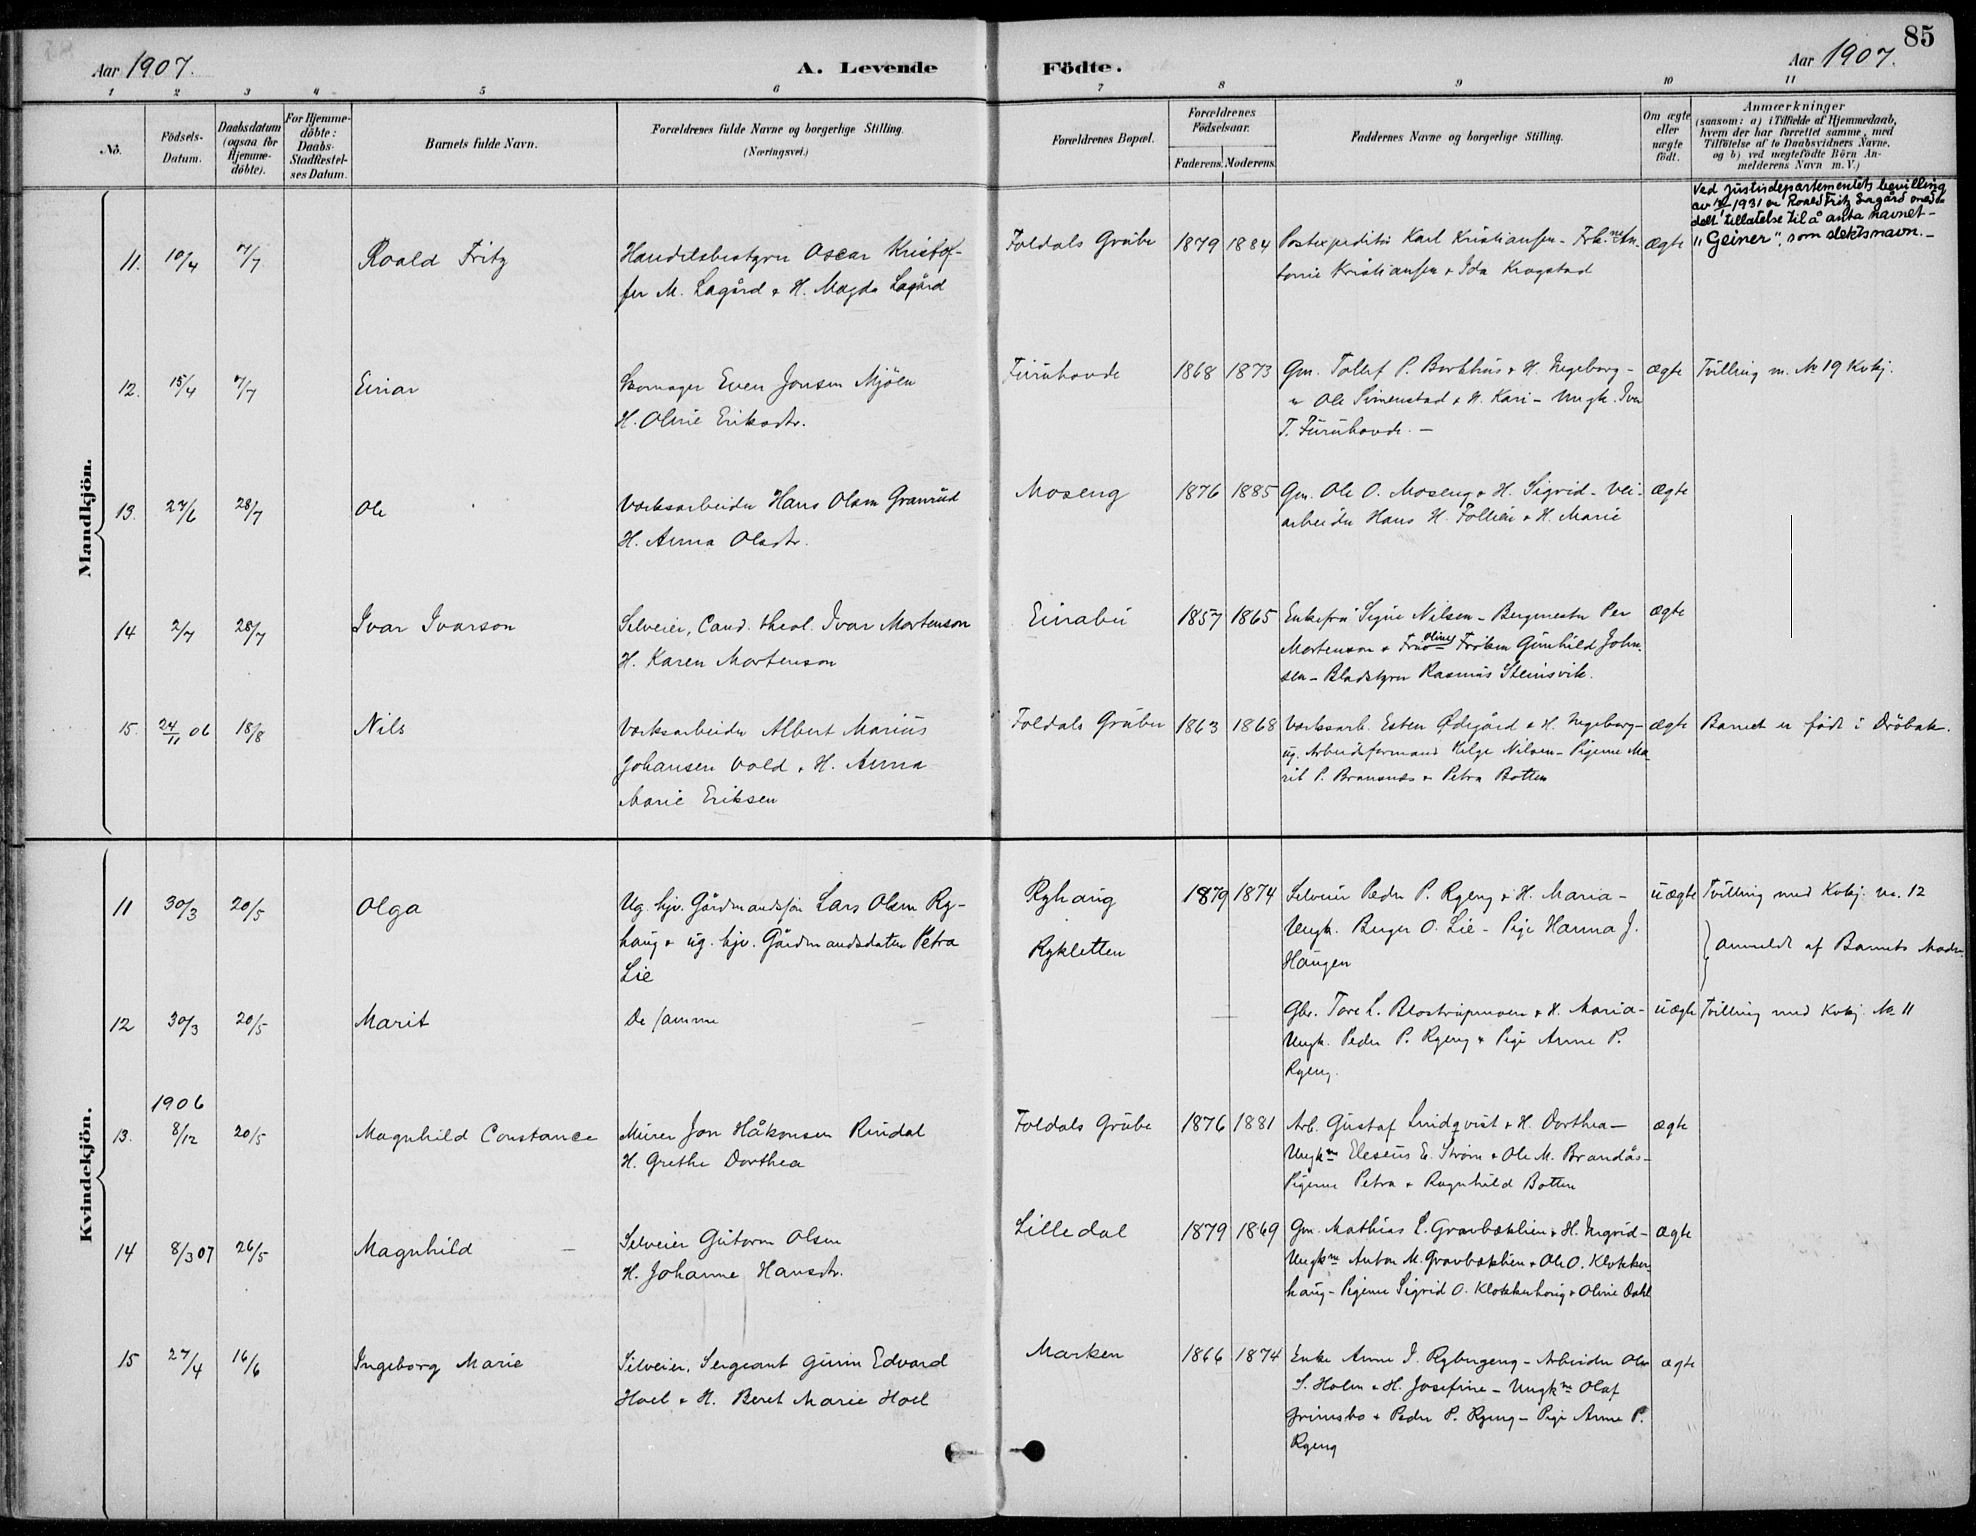 85
Aar 1907.
A. Levende
Födte.
Aar 1907.
1 2 3 4 5 6 7 8 9 10 11
No.
Födsels-Datum.
Daabsdatum (ogsaa for Hjemme-döbte).
For Hjemme-döbte: Daabs-Stadfæstel-ses Datum.
Barnets fulde Navn.
Forældrenes fulde Navne og borgerlige Stilling.
(Næringsvei.)
Forældrenes Bopæl.
Forældrenes Födselsaar.
Faderens. Moderens.
Faddernes Navne og borgerlige Stilling.
Om ægte eller uægte födt.
Anmærkninger
(saasom: a) i Tilfælde af Hjemmedaab,
hvem der har forrettet samme, med
Tilföielse af to Daabsvidners Navne,
og b) ved uægtefödte Börn An-
melderens Navn m. V.)
Mandkjön.
11. 10/4 7/7 Roald Fritz
Handelsbestyrer Oscar Kristof-
fer M. Lagård & H. Magda Lagård
Foldals Grube 1879 1884
Postexpeditör Karl Kristiansen - Frk.ne An-
tonie Kristiansen & Ida Krogstad
ægte
Ved Justisdepartementets bevilling
av 1931 er Roald Fritz Lagård med-
delt tillatelse til å anta navnet -
"Geiner", som slektsnavn. -
12. 15/4 7/7 Einar
Skomager Even Jonsen Mjöen
H. Oline Eriksdtr.
Furuhovde 1868 1873
Gm. Tollef P. Borkhus & H. Ingeborg -
" Ole Simenstad & H. Kari - Ungk. Iver
T. Furuhovde. -
ægte Tvilling m. No 19 Kvkj.
13. 27/6 28/7 Ole
Værksarbeider Hans Olsen Granrud
H. Anna Olsdtr.
Moseng 1876 1885
Gm. Ole O. Moseng & H. Sigrid - Vei-
arbeider Hans H. Follien & H. Marie
ægte
14 2/7 28/7 Ivar Ivarson
Selveier, Cand. theol. Ivar Mortenson
H. Karen Mortenson
Einabu 1857 1865
Enkefru Signe Nilsen - Bergmester Per
Mortenson & Fru Oline Fröken Gunhild John-
sen - Bladstyrer Rasmus Steinsvik.
ægte
15. 24/11 06 18/8 Nils
Værksarbeider Albert Marius
Johansen Vold & H. Anna
Marie Eriksen
Foldals Gruber 1863 1868
Værksarb. Esten Ödegård & H. Ingeborg -
ug. Arbeidsformand Helge Nilsen - Pigerne Ma-
rit P. Brænnæs & Petra Botten
ægte Barnet er födt i Dröbak.
Kvindekjön.
11 30/3 20/5 Olga
Ug. hjv. Gårdmandssön Lars Olsen Ry-
haug & ug. hjv. Gårdmandsdatter Petra
Lie
Ryhaug
Rykletten
1879 1874
Selveier Peder P. Ryeng & H. Maria -
Ungk. Birger O. Lie - Pige Hanna J.
Haugen
uægte Tvilling med Kvkj. no. 12
anmeldt af Barnets Moder.
12 30/3 20/5 Marit
De samme — —
Gbr. Tore L. Blostrupmoen & H. Maria -
Ungk. Peder P. Ryeng & Pige Anne P.
Ryeng.
uægte Tvilling med Kvkj. No 11
1906
13. 8/12 20/5 Magnhild Constance
Murer Jon Håkonsen Rindal
H. Grethe Dorthea
Foldals Grube 1876 1881
Arb. Gustaf Lindqvist & H. Dorthea -
Ungkne Eleseus E. Ström & Ole M. Brandås -
Pigerne Petra & Ragnhild Botten
ægte
14 8/3 07 26/5 Magnhild —
Selveier Gutorm Olsen
H. Johanne Hansdtr.
Lilledal 1879 1869
Gm. Mathias E. Gravbæklien & H. Ingrid -
Ungkne Anton M. Gravbæklien & Ole O. Klokker-
haug - Pigerne Sigrid O. Klokkerhaug & Oline Dahl
ægte
15 27/4 16/6 Ingeborg Marie
Selveier, Sergeant Edvard
Hoel & H. Beret Marie Hoel
Marken 1866 1874
Enke Anne I. Rybergeng - Arbeider Ole
S. Holm & H. Josefine - Ungkne Olaf
Grimsbo & Peder P. Ryeng - Pige Anne P.
Ryeng
ægte